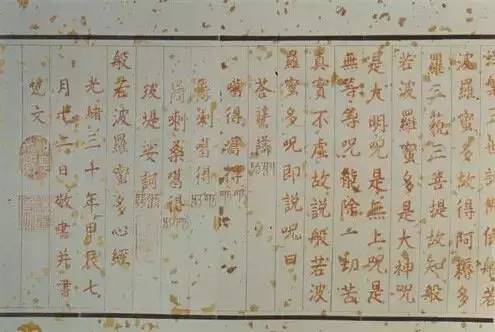 世諸佛依般若
波羅蜜多故得阿耨多
羅三藐三菩提故知般
若波羅蜜多是大神咒
是大明咒是無上咒是
無等等咒能除一切苦
真實不虛故說般若波
羅蜜多咒即說咒曰
噶得
剌噶得
剌桑噶得
堤娑訶
般若波羅蜜多心經
光緒三十年甲辰七
月廿六日敬書并書
文